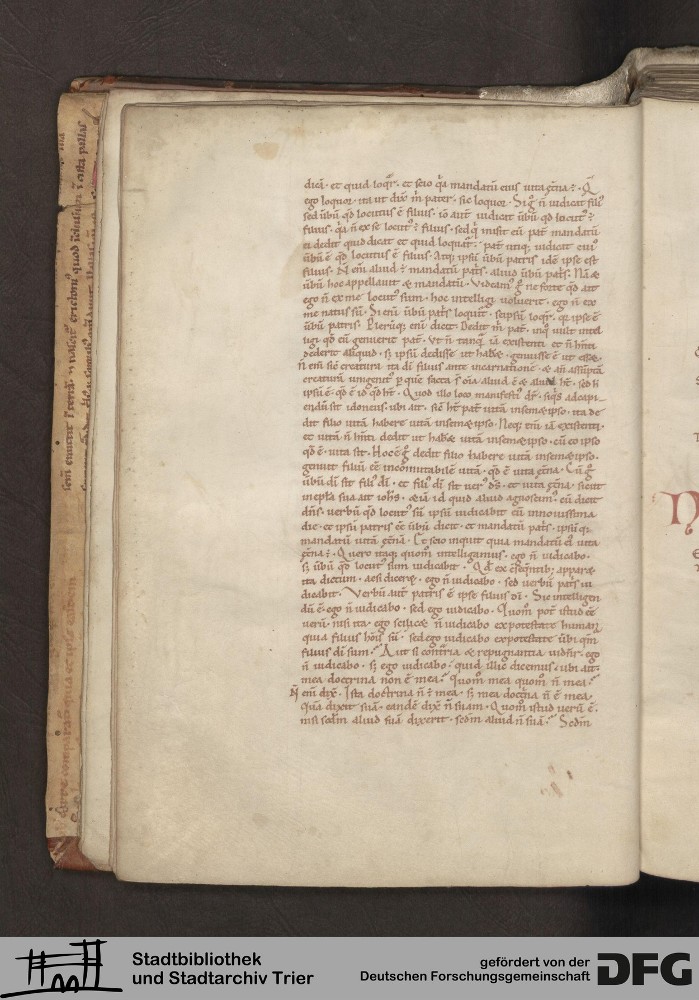 dicā. et quid loqr̄. et scio qa mandatū eius uita ęt̄na ē. Q̄
ego loquor. ita ut dix̄ m̄ pater. sic loquor. Si g̊ n̄ iudicat fili'
sed ūbū qd̄ locutus ē filius. iō aut̄ iudicat ūbū qd̄ locut' ē
filius. qa n̄ ex se locut' ē filius. sed q̄ misit eū pat̄ mandatū
ei dedit quid dicat et quid loquat̄. pat̄ utiq; iudicat cui'
ūbū ē qd̄ locutus ē filius. Atq; ipsū ūbū patris idē ipse est
filius. N̄ enī aliud ē mandatū pat̄s. aliud ūbū pat̄s. Nā &
ūbū hoc appellauit & mandatū. Videam' g̊ ne forte qd̄ ait
ego n̄ ex me locut' sum. hoc intelligi uoluerit. ego n̄ ex
me natus sū. Si enī ūbū pat̄s loquit̄. seipsū loqr̄. qr ipse ē
ūbū patris. Plerūq; enī dicit. Dedit m̄ pat̄. inq̊ uult intel
ligi qd̄ eū genuerit pat̄. Vt n̄ tanq̄ iā existenti et n̄ hn̄ti
dederit aliquid. s; ipsū dedisse ut hab&. genuisse ē ut ess&.
n̄ enī sic creatura ita dī filius ante incarnationē & an̄ assūptā
creaturā unigenit' p̱ quē facta s̄ oīa aliud ē & aliud ht̄. sed h
ipsū ē. qd̄ ē id qd̄ ht̄. Quod illo loco manifesti' dr̄. siq̄s ad capi
endū sit idoneus. ubi ait. sic̄ ht̄ pat̄ uitā in sem&ipso. ita de
dit filio uitā habere uitā in sem&ipso. Neq; enī iā existenti.
et uitā n̄ hn̄ti dedit ut hab& uitā in sem&ipso. cū eo ipso
qd̄ ē. uita sit. Hoc ē g̊ dedit filio habere uitā in sem&ipso.
genuit filiū eē incomutabilē uitā. qd̄ ē uita ęt̄na. Cū g̊
ūbū dī sit fili' dī. et fili' dī sit ver' ds̄. et uita ęt̄na. sicut
in epl̄a sua ait ioh̄s. &iā id quid aliud agnoscim'. cū dicit
dn̄s. uerbū qd̄ locut' sū ipsū iudicabit eū in nouissima
die. et ipsū patris eē ūbū dicit. et mandatū pat̄s. ipsū q;
mandatū uitā ęt̄nā. Et scio inquit quia mandatū ei' uita
ęt̄na ē. Quero itaq; quom̊ intelligamus. ego n̄ iudicabo.
s; ūbū qd̄ locut' sum iudicabit. Qd̄ ex cſeq̄ntib; appar&
ita dictum. ac si dicer&. ego n̄ iudicabo. sed uerbū pat̄s iu
dicabit. Verbū aut̄ patris ē ipse filius dī. Sic intelligen
dū ē. ego n̄ iudicabo. sed ego iudicabo. Quom̊ pot̄ istud eē
uerū. nisi ita. ego scilic& n̄ iudicabo ex potestate humana
quia filius hoīs sū. sed ego iudicabo ex potestate ūbi qm̄
filius dī sum. Aut si cont̄ria & repugnantia uidn̄r. ego
n̄ iudicabo. s; ego iudicabo. quid illud dicemus. ubi ait.
mea doctrina non ē mea. Quom̊ mea quom̊ n̄ mea.
N̄ enī dix̄. Ista doctrina n̄ ē mea. s; mea doct̄na n̄ ē mea.
quā dixit suā. eandē dix̄ n̄ suam. Quom̊ istud uerū ē.
nisi sedm̄ aliud suā dixerit. sedm̄ aliud n̄ suā. Sedm̄
Stadtbibliothek
und Stadtarchiv Trier
gefördert von der
Deutschen Forschungsgemeinschaft
DFG